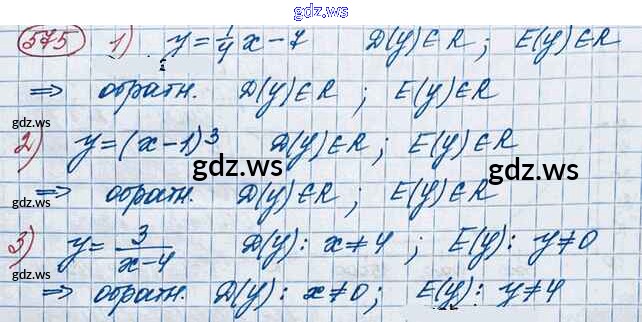 gdz.ws
575 1) y = 1/4 x - 7 D(y) ∈ R ; E(y) ∈ R
⇒ обратн. D(y) ∈ R ; E(y) ∈ R
gdz.ws
2) y = (x - 1)³ D(y) ∈ R ; E(y) ∈ R
gdz.ws gdz.ws
⇒ обратн. D(y) ∈ R ; E(y) ∈ R
3) y = 3/(x-4) D(y): x ≠ 4 ; E(y): y ≠ 0
gdz.ws
⇒ обратн. D(y): x ≠ 0 ; E(y): y ≠ 4
gdz.ws gdz.ws